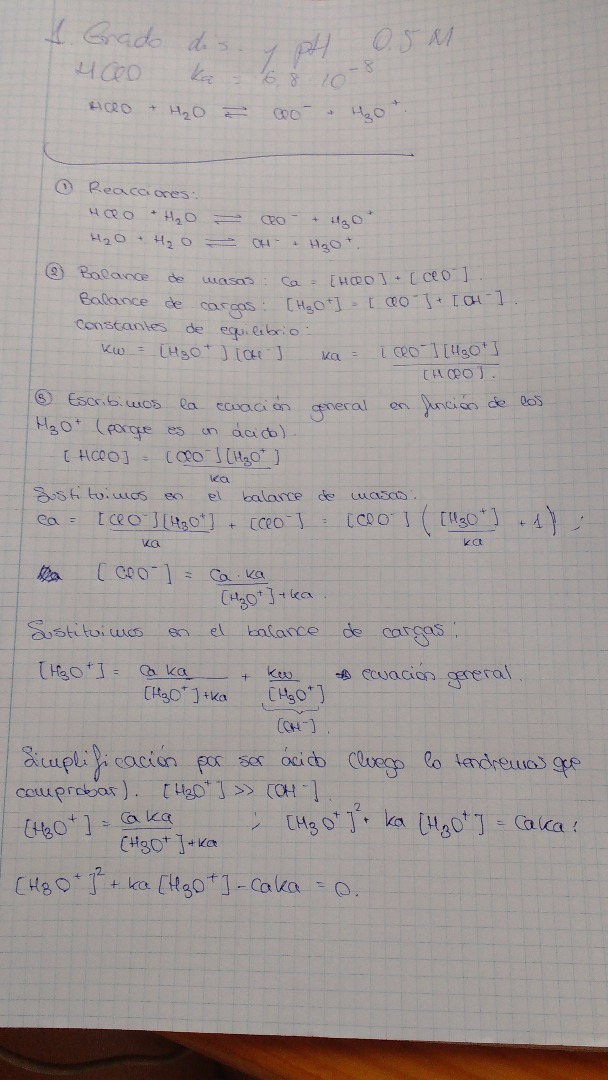 1. Grado dis. y pH 0.5 M
HClO ka = 6.8·10⁻⁸
HClO + H₂O ⇌ ClO⁻ + H₃O⁺.
① Reacciones:
HClO + H₂O ⇌ ClO⁻ + H₃O⁺
H₂O + H₂O ⇌ OH⁻ + H₃O⁺.
② Balance de masas: Ca = [HClO] + [ClO⁻].
Balance de cargas: [H₃O⁺] = [ClO⁻] + [OH⁻].
Constantes de equilibrio:
kw = [H₃O⁺][OH⁻] ka = [ClO⁻][H₃O⁺] / [HClO].
③ Escribimos la ecuación general en función de los
H₃O⁺ (porque es un ácido)
[HClO] = [ClO⁻][H₃O⁺] / ka
Sustituimos en el balance de masas:
Ca = [ClO⁻][H₃O⁺] / ka + [ClO⁻] = [ClO⁻] ([H₃O⁺] / ka + 1);
[ClO⁻] = Ca·ka / [H₃O⁺]+ka.
Sustituimos en el balance de cargas:
[H₃O⁺] = Ca ka / [H₃O⁺]+ka + kw / [H₃O⁺] → ecuación general.
[OH⁻].
Simplificación por ser ácido (luego lo tendremos que
comprobar). [H₃O⁺] >> [OH⁻]
[H₃O⁺] = Ca ka / [H₃O⁺]+ka ; [H₃O⁺]² + ka [H₃O⁺] = Caka;
[H₃O⁺]² + ka [H₃O⁺] - Caka = 0.